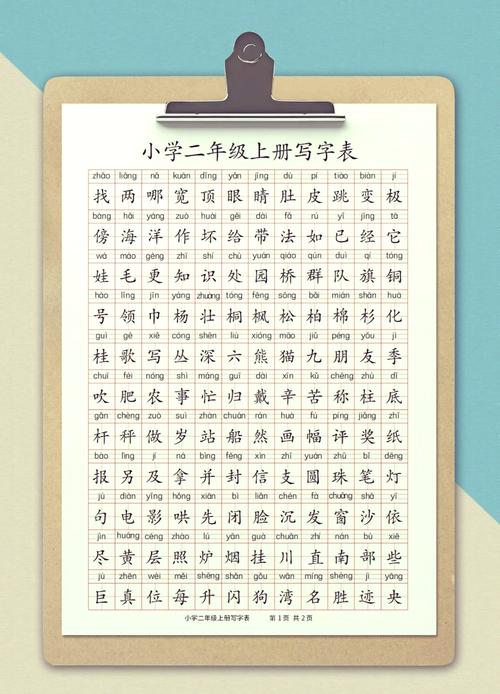 小学二年级上册写字表
zhǎo liǎng nǎ kuān dǐng yǎn jīng dù pí tiào biàn jí
找 两 哪 宽 顶 眼 睛 肚 皮 跳 变 极
bàng hǎi yáng zuò huài gěi dài fǎ rú yǐ jīng tā
傍 海 洋 作 坏 给 带 法 如 已 经 它
wá máo gèng zhī shí chù yuán qiáo qún duì qí tóng
娃 毛 更 知 识 处 园 桥 群 队 旗 铜
hào lǐng jīn yáng zhuàng tóng fēng sōng bǎi mián shān huà
号 领 巾 杨 壮 桐 枫 松 柏 棉 杉 化
guì gē xiě cóng shēn liù xióng māo jiǔ péng yǒu jì
桂 歌 写 丛 深 六 熊 猫 九 朋 友 季
chuī féi nóng shì máng guī dài xīn kǔ chēng zhù dǐ
吹 肥 农 事 忙 归 戴 辛 苦 称 柱 底
gǎn chèng zuò suì zhàn chuán rán huà fú píng jiǎng zhǐ
杆 秤 做 岁 站 船 然 画 幅 评 奖 纸
bào lìng jí ná bìng fēng xìn zhī yuán zhū bǐ dēng
报 另 及 拿 并 封 信 支 圆 珠 笔 灯
jù diàn yǐng hōng xiān bì liǎn chén fā chuāng shā yī
句 电 影 哄 先 闭 脸 沉 发 窗 沙 依
jìn huáng céng zhào lú yān guà chuān zhí nán bù xiē
尽 黄 层 照 炉 烟 挂 川 直 南 部 些
jù zhēn wèi měi shēng shǎn gǒu wān míng shèng jì yāng
巨 真 位 每 升 闪 狗 湾 名 胜 迹 央
小学二年级上册写字表 第 1 页 共 2 页